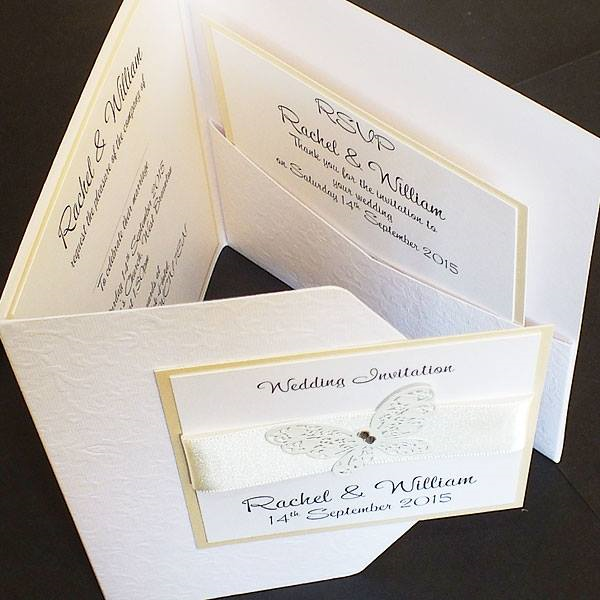 Rachel & William
request the pleasure of the company of
To celebrate their marriage
September 2015
RSVP
Rachel & William
Thank you for the invitation to
your wedding
on Saturday 14th September 2015
Wedding Invitation
Rachel & William
14th September 2015